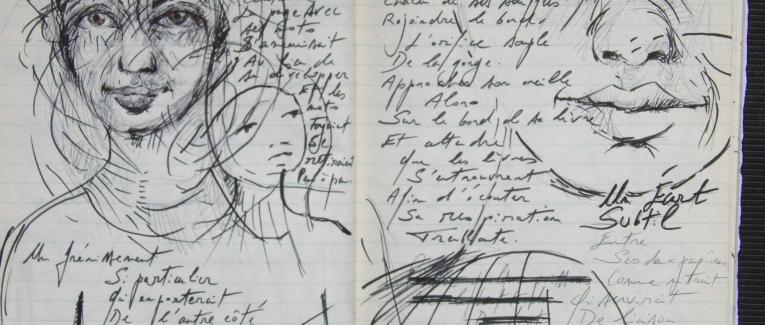 La page avec
Ses mots
S'amenuisait
Au lieu de
Se développer
Et les
mots
Se
Peu à peu
Un frémissement
Si particulier
Qui emporterait
De l'autre côté
Rejoindre le bord
L'orifice souple
De la gorge.
Approcher son oreille
Alors
Sur le bord de sa lèvre
Et attendre
Que les lèvres
S'entrouvrent
Afin d'écouter
Sa respiration
Troublante.
Un Écart
Subtil
Entre
Ses deux papiers
Comme un trait
Qui servirait
De liaison